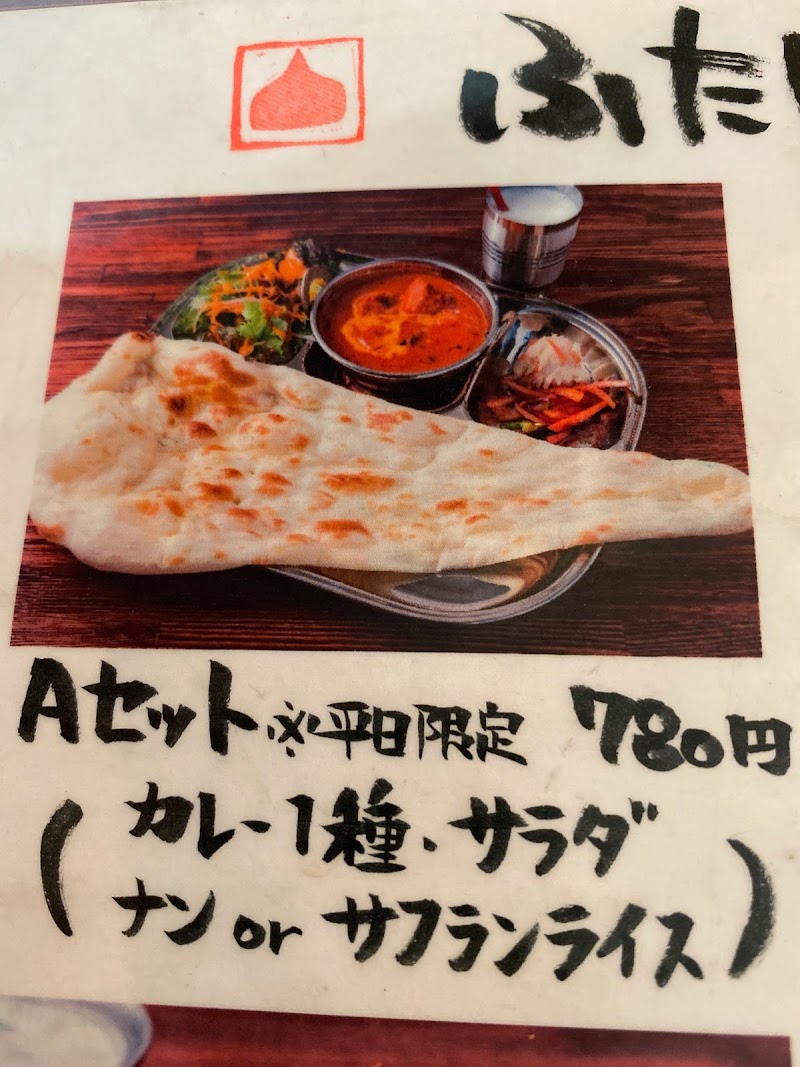 ふた
Aセット※平日限定 780円
(カレー1種・サラダ
ナンorサフランライス)